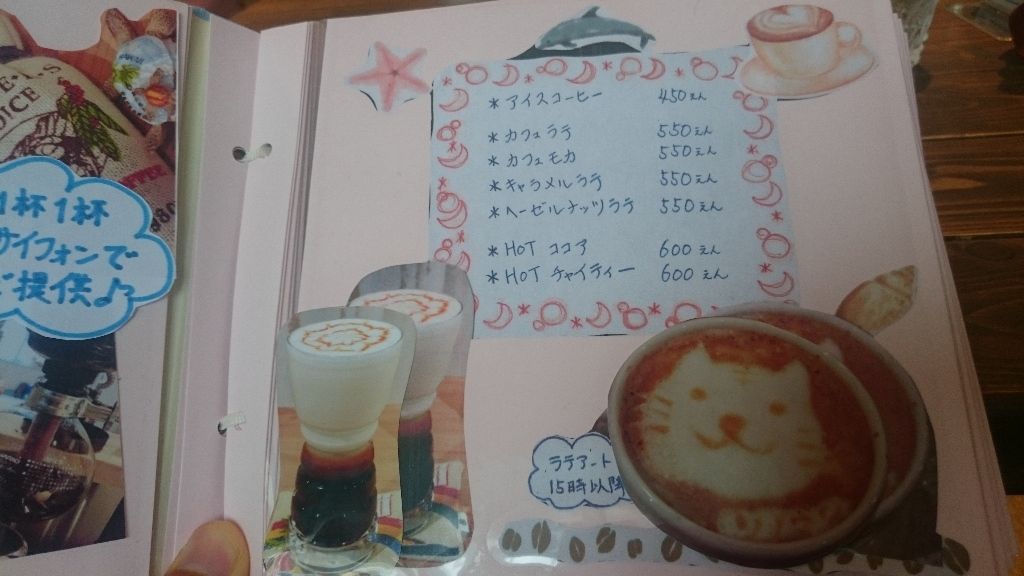 E·L'S
OICE
1杯1杯
サイフォンで
ご提供♪
*アイスコーヒー 450えん
*カフェラテ 550えん
*カフェモカ 550えん
*キャラメルラテ 550えん
*ヘーゼルナッツラテ 550えん
*HOT ココア 600えん
*HOT チャイティー 600えん
ラテアート
15時以降